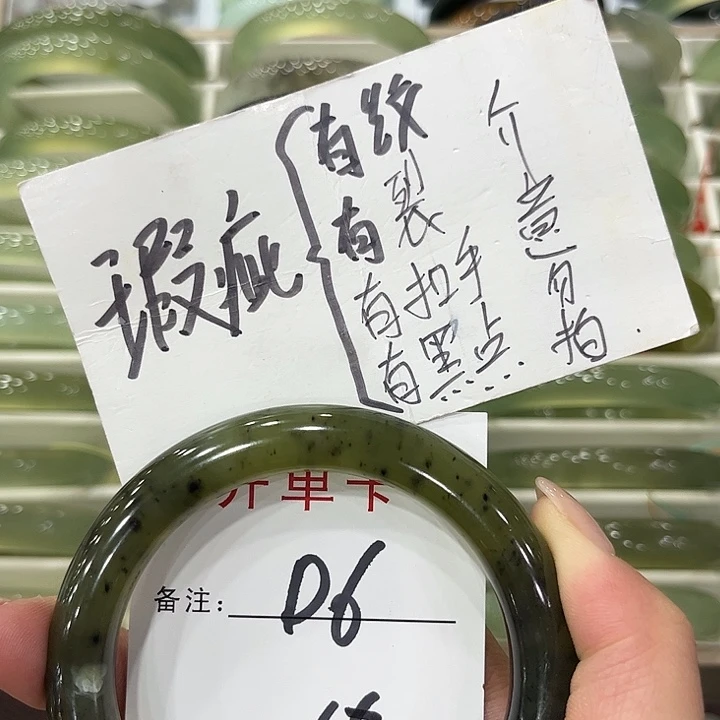 瑕疵
有纹
有裂
有扣手
有黑点.....
介意勿拍.
开单卡
备注:
D6